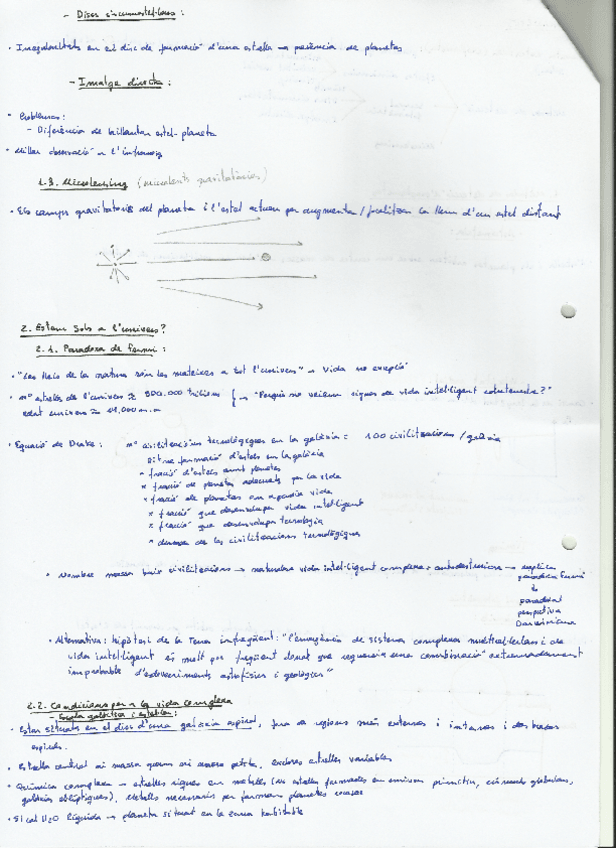 - Discs circumstel·lars:
• Irregularitats en el disc de formació d'una estrella → presència de planetes
- Imatge directa:
• Problemes:
- Diferència de brillantor estel-planeta
• Millor observació a l'infraroig
1.3. Microlensing (microlents gravitatòries)
• Els camps gravitatoris del planeta i l'estel actuen per augmentar/focalitzar la llum d'un estel distant
2. Estem sols a l'univers?
2.1. Paradoxa de Fermi:
• "Les lleis de la natura són les mateixes a tot l'univers" → Vida no excepció
• nº estrelles de l'univers ≈ 800.000 trilions } → "Perquè no veiem signes de vida intel·ligent extraterrestre?"
edat univers ≈ 14.000 m.a
• Equació de Drake: nº civilitzacions tecnològiques en la galàxia = 100 civilitzacions/galàxia
Ritme formació d'estels en la galàxia
* fracció d'estels amb planetes
* fracció de planetes adequats per la vida
* fracció de planetes on apareix vida
* fracció que desenvolupa vida intel·ligent
* fracció que desenvolupa tecnologia
* durada de les civilitzacions tecnològiques
• Nombre massa baix civilitzacions → naturalesa vida intel·ligent complexa = autodestructora → explica
paradoxa Fermi
paradoxal
perspectiva
Darwiniana
• Alternativa: hipòtesi de la Terra infreqüent: "l'emergència de sistema complexa multicel·lulars i de
vida intel·ligent és molt poc freqüent donat que requereix una combinació extremadament
improbable d'esdeveniments astrofísics i geològics"
2.2. Condicions per a la vida complexa
- Escala galàctica i estel·lar:
• Estar situats en el disc d'una galàxia espiral, fora de regions més externes i internes i dos braços
espirals.
• Estrella central ni massa gran ni massa petita, excloses estrelles variables
• Química complexa → estrelles riques en metalls (no estrelles formades en univers primitiu, cúmuls globulars,
galàxies el·líptiques), metalls necessaris per formar planetes rocosos
• Si cal H2O líquida → planeta situat en la zona habitable